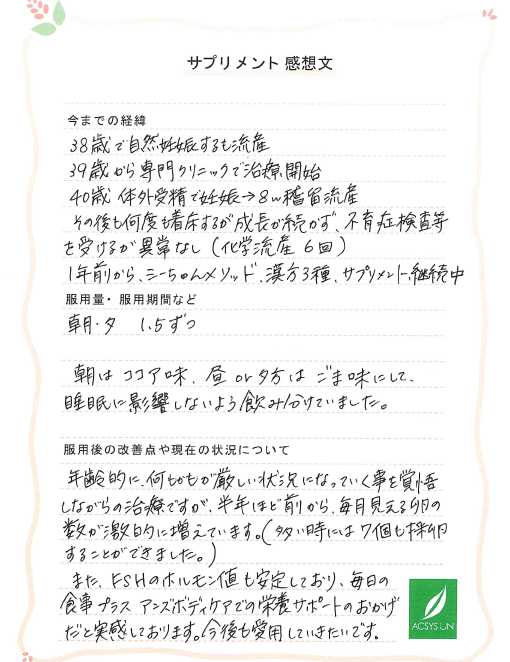 サプリメント 感想文
今までの経緯
38歳で自然妊娠するも流産
39歳から専門クリニックで治療開始
40歳 体外受精で妊娠→8w稽留流産
その後も何度も着床するが成長が続かず、不育症検査等
を受けるが異常なし(化学流産 6回)
1年前から、シーちゃんメソッド、漢方3種、サプリメント継続中
服用量・服用期間など
朝・夕 1.5ずつ
朝は ココア味、昼 or 夕方は ごま味にして、
睡眠に影響しないよう飲み分けていました。
服用後の改善点や現在の状況について
年齢的に、何もかもが厳しい状況になっていく事を覚悟
しながらの治療ですが、半年ほど前から、毎月見える卵の
数が激的に増えています。(多い時には7個も採卵
することができました。)
また、FSHのホルモン値も安定しており、毎日の
食事プラス アンズボディケアでの栄養サポートのおかげ
だと実感しております。今後も愛用していきたいです。
ACSYS UN